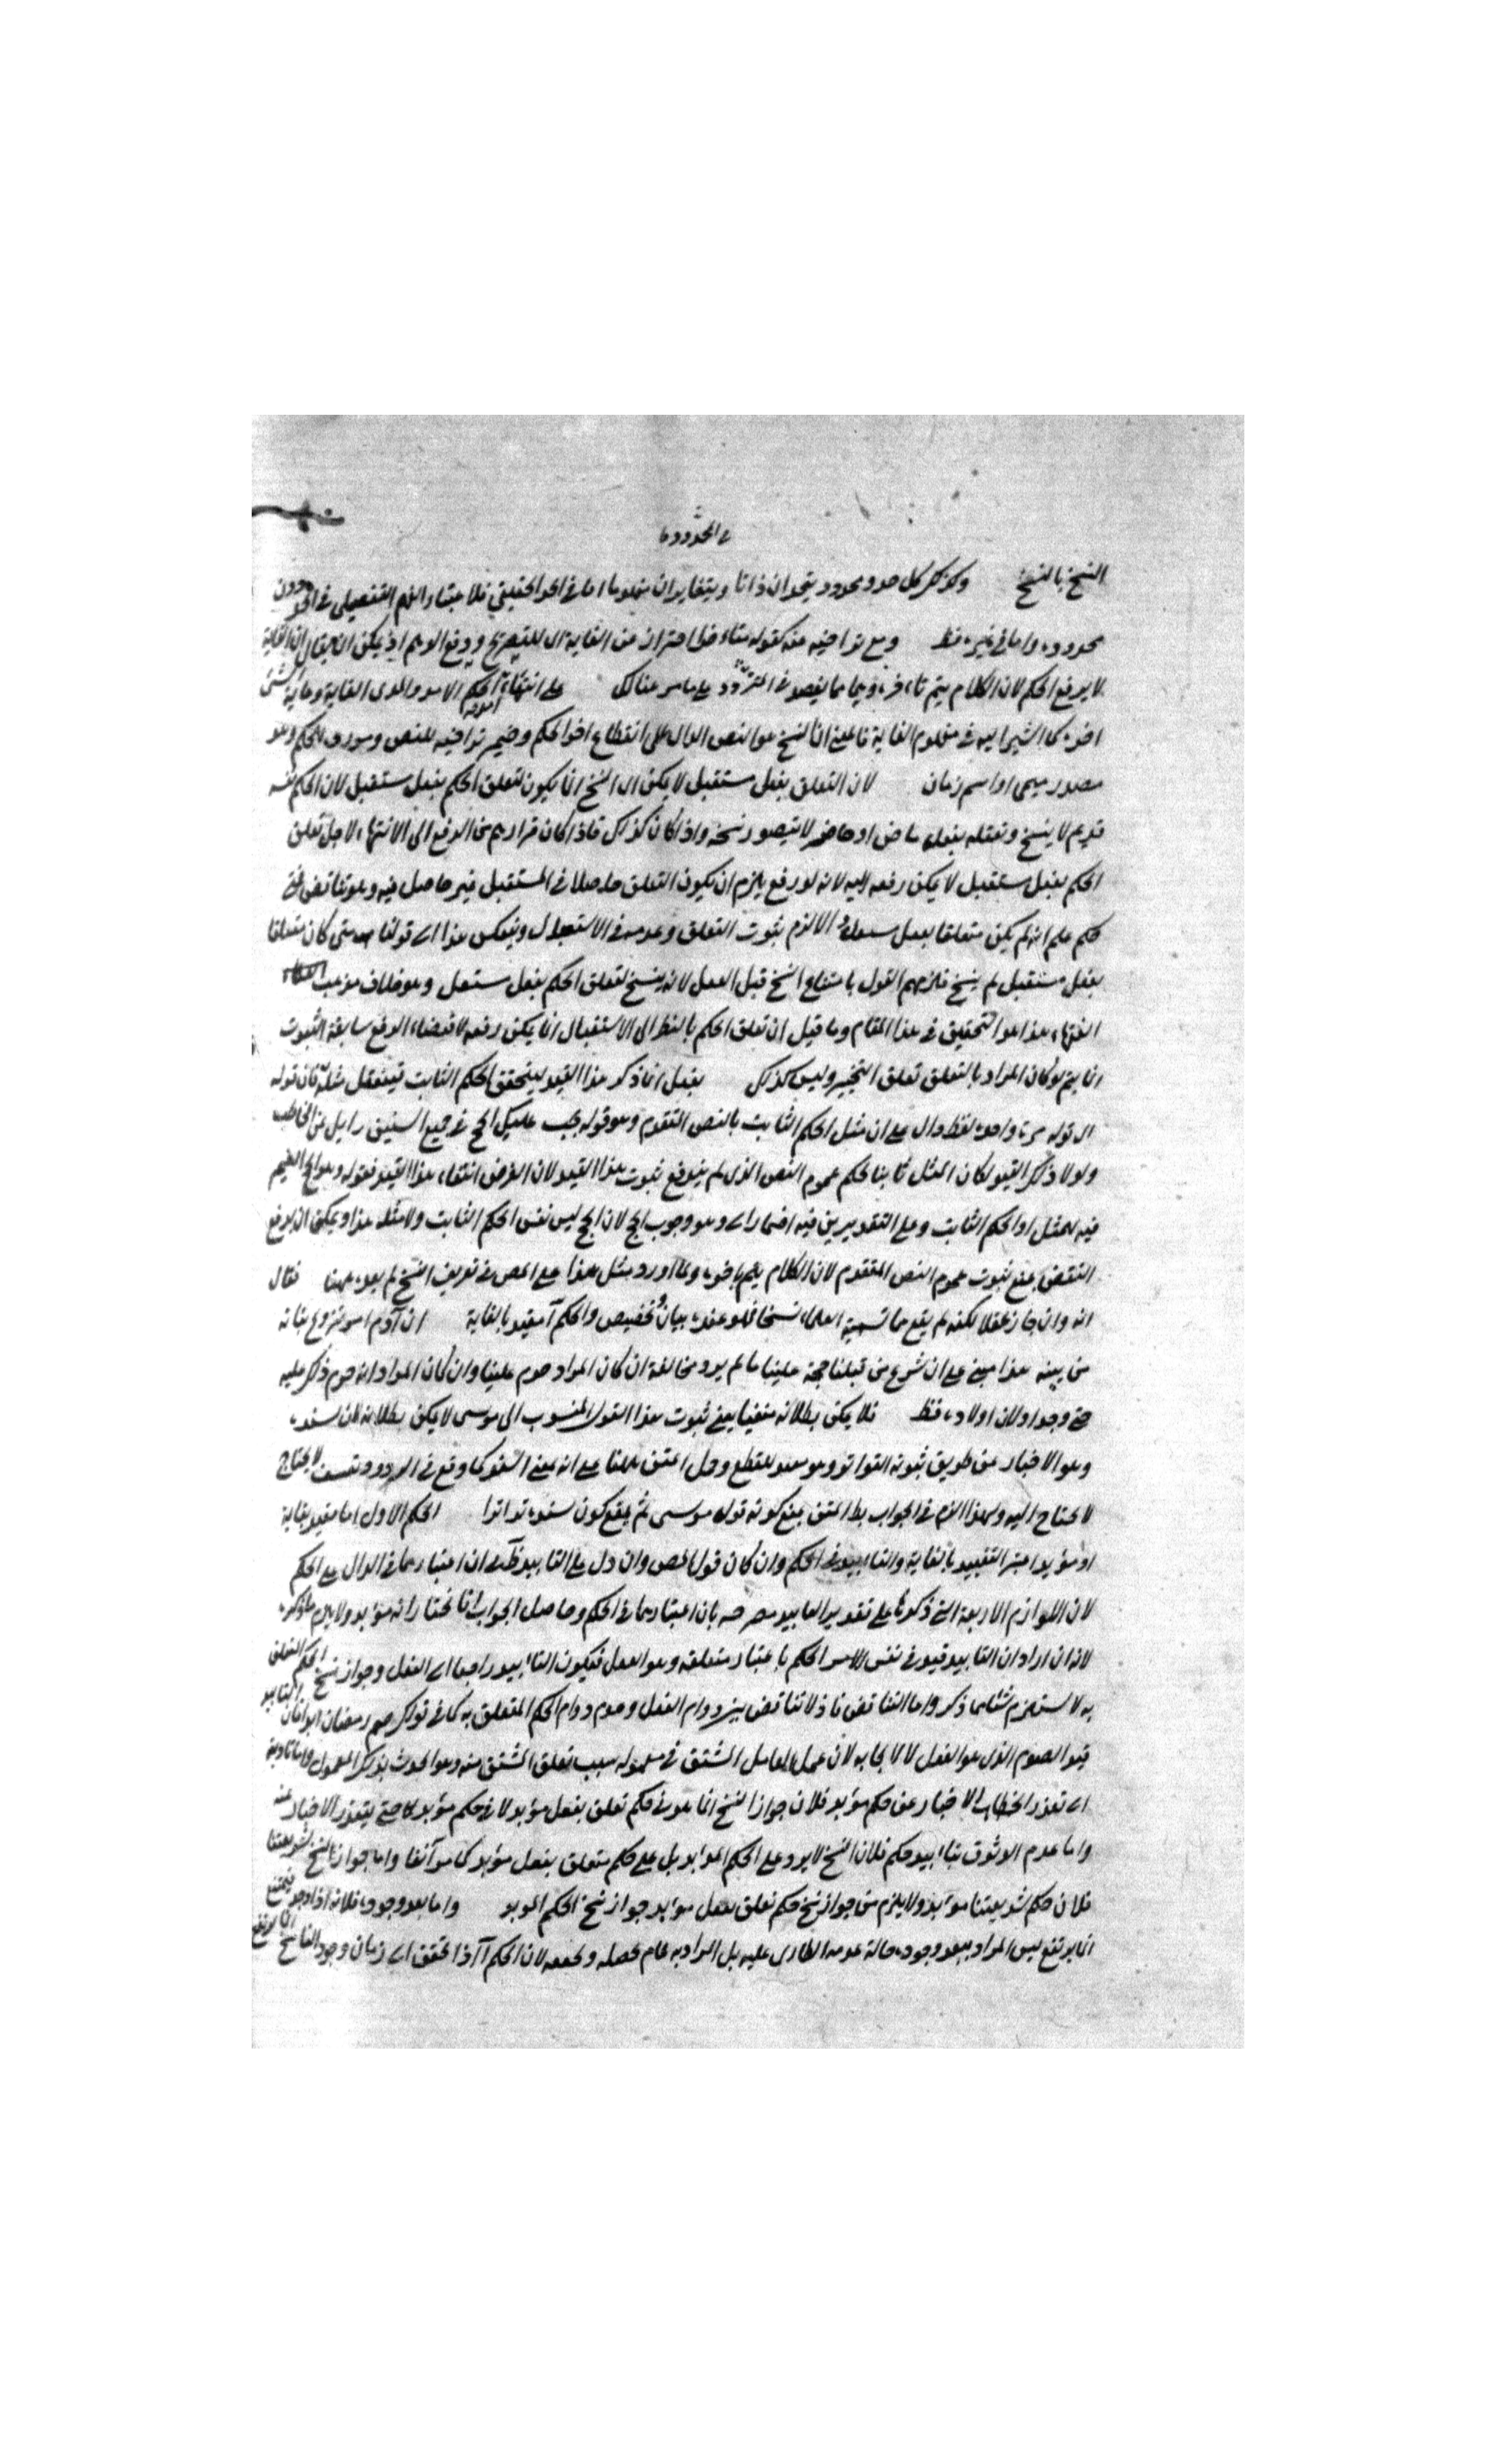 في المحدود وما
النسخ بالنسخ وكذكر كل حد ومحدود يتحدان ذاتا ويتغايران مفهوما اما في الحد الحقيقي فلاعتبار الفهم التفصيلي في الحد دون
محدوده واما في غيره فظ ومع تراخيه عنه كقوله متأخرا احتراز من الغاية اي للتصريح ودفع الوهم اذ يمكن ان يقال ان الغاية
لا يرفع الحكم لان الكلام يتم بآخره على ما مر هنالك على انتهاء الحكم الامد والمدى الغاية وغاية الشئ
آخره كما اشير اليه في مفهوم الغاية فاعلمن ان النسخ هو النص الدال على انقطاع آخر الحكم وضمير تراخيه للنص ومورده للحكم وهو
مصدر ميمي او اسم زمان لان التعلق بفعل مستقبل لا يمكن اي النسخ انما يكون لتعلق الحكم بفعل مستقبل لان الحكم نفسه
قديم لا ينسخ وتعلقه بفعل ماض او حاضر لا يتصور نسخه واذا كان كذلك فاذا كان فرارهم من الرفع الى الانتهاء لاجل تعلق
الحكم بفعل مستقبل لا يمكن رفعه لانه لو رفع يلزم ان يكون التعلق حاصلا في المستقبل غير حاصل فيه وهو تناقض
حكم علم انه لم يكن متعلقا بفعل والا لزم ثبوت التعلق وعدمه في الاستقبال وينعكس هذا الى قولنا متى كان متعلقا
بفعل مستقبل لم ينسخ فلزمهم القول بامتناع النسخ قبل الفعل لانه ينسخ لتعلق الحكم بفعل مستقبل وهو خلاف مذهب
الفقهاء هذا هو التحقيق في هذا المقام وما قيل ان تعلق الحكم بالنظر الى الاستقبال انما يمكن رفعه لاقتضاء الرفع سابقة الثبوت
انما يتم لو كان المراد بالتعلق تعلق التنجيز وليس كذلك بفعل انما ذكر هذا القيد ليتحقق الحكم الثابت فيتعقل مثله فان قوله
اي قوله مرة واحدة لفظ دال على ان مثل الحكم الثابت بالنص المتقدم وهو قوله يجب عليكم الحج في جميع السنين زايل عن المخاطب
ولولا ذكر القيد لكان المثل ثابتا بحكم عموم النص الذي لم يندفع ثبوت هذا القيد لان الغرض انتفاء هذا القيد فقوله وهو الحج الضمير
فيه للمثل او الحكم الثابت وعلى التقديرين فيه اضمار اي وهو وجوب الحج لان الحج ليس نفس الحكم الثابت ولا مثله هذا ويمكن ان يدفع
النقض بمنع ثبوت عموم النص المتقدم لان الكلام يتم بآخره ولما اورد مثل هذا على المص في تعريف النسخ لم يعده ههنا فقال
انه وان جاز عقلا لكنه لم يقع ما تسميه العلماء نسخا فهو عنده بيان تخصيص والحكم مقيد بالغاية ان آدم امر بتزويج بناته
من بنيه هذا مبني على ان شرع من قبلنا حجة علينا ما لم يرد مخالفة ان كان المراد حرم علينا وان كان المراد انه حرم ذكر عليه
حتى وجد اولان اولاده فظ فلا يمكن بطلانه متفيا يعني ثبوت هذا القول المنسوب الى موسى لا يمكن بطلانه لان سنده
وهو الاخبار عن طريق ثبوته التواتر وهو مفيد للقطع وحل المتن ههنا على انه بمعنى السند كما وقع في تعسف لا يحتاج
لا يحتاج اليه ولهذا التزم في الجواب بط المتن بمنع كونه قول موسى ثم بمنع كون سنده تواترا الحكم الاول اما مقيد بغاية
او مؤبد اعتبر التقييد بالغاية والتأبيد في الحكم وان كان قول المص وان دل على التأبيد ان اعتبارهما في الدال على الحكم
لان اللوازم الاربعة التي ذكرها على تقدير التأبيد مصرحة بان اعتبارهما في الحكم وحاصل الجواب انا نختار انه مؤبد ولا يلزم ما ذكره
لانه ان اراد ان التأبيد قيد في نفس الامر للحكم باعتبار متعلقه وهو الفعل فيكون التأبيد راجعا الى الفعل وجواز نسخ الحكم المتعلق
به لا يستلزم شيئا مما ذكر واما التناقض فاذ لا تناقض بين دوام الفعل وعدم دوام الحكم المتعلق به كما في قولك صم رمضان ابدا فان التأبيد
قيد الصوم الذي هو الفعل لا لايجابه لان عمل العامل المشتق في معموله بسبب تعلق المشتق منه وهو الحدث بذلك المعمول واما تأديته
الى تعذر الاخبار عن حكم مؤبد فلان جواز النسخ انما هو في حكم تعلق بفعل مؤبد لا في حكم مؤبد حتى يتعذر الاخبار عنه
واما عدم الوثوق بتأبيد حكم فلان النسخ لا يرد على الحكم المؤبد بل على حكم متعلق بفعل مؤبد كما مر آنفا واما جواز نسخ شريعتنا
فلان حكم شريعتنا مؤبد ولا يلزم من جواز نسخ حكم تعلق بفعل مؤبد جواز نسخ الحكم المؤبد واما بعد وجوده فلانه اذا وجد فيمتنع
انما يرتفع ليس المراد ببعد وجوده حالة عدمه الطارى عليه بل المراد به تمام تحصله وتحققه لان الحكم اذا تحقق الى زمان وجود الناسخ انما يرتفع